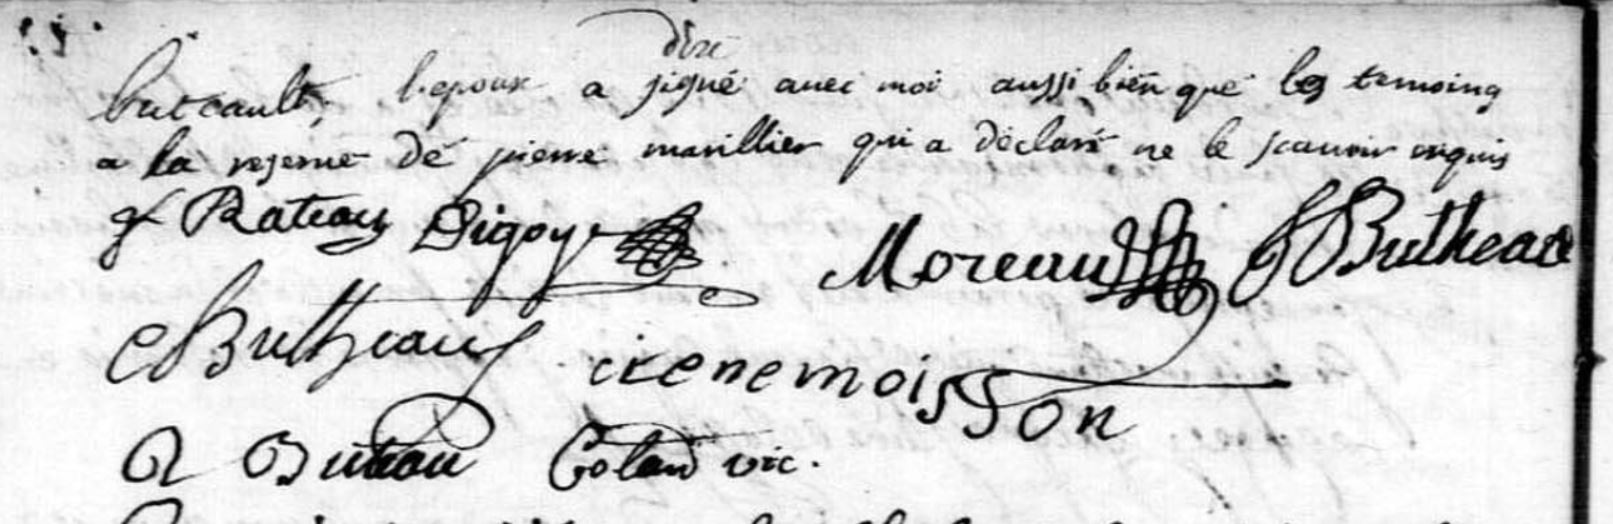 dire
buteault, l'epoux a signé avec moi aussi bien que les temoing
a la reserve de pierre marillier qui a declaré ne le scauoir requis
f Rateau Digoy Moreau J Butheau
C Butheau irene moisson
R Buteau Coland vic.